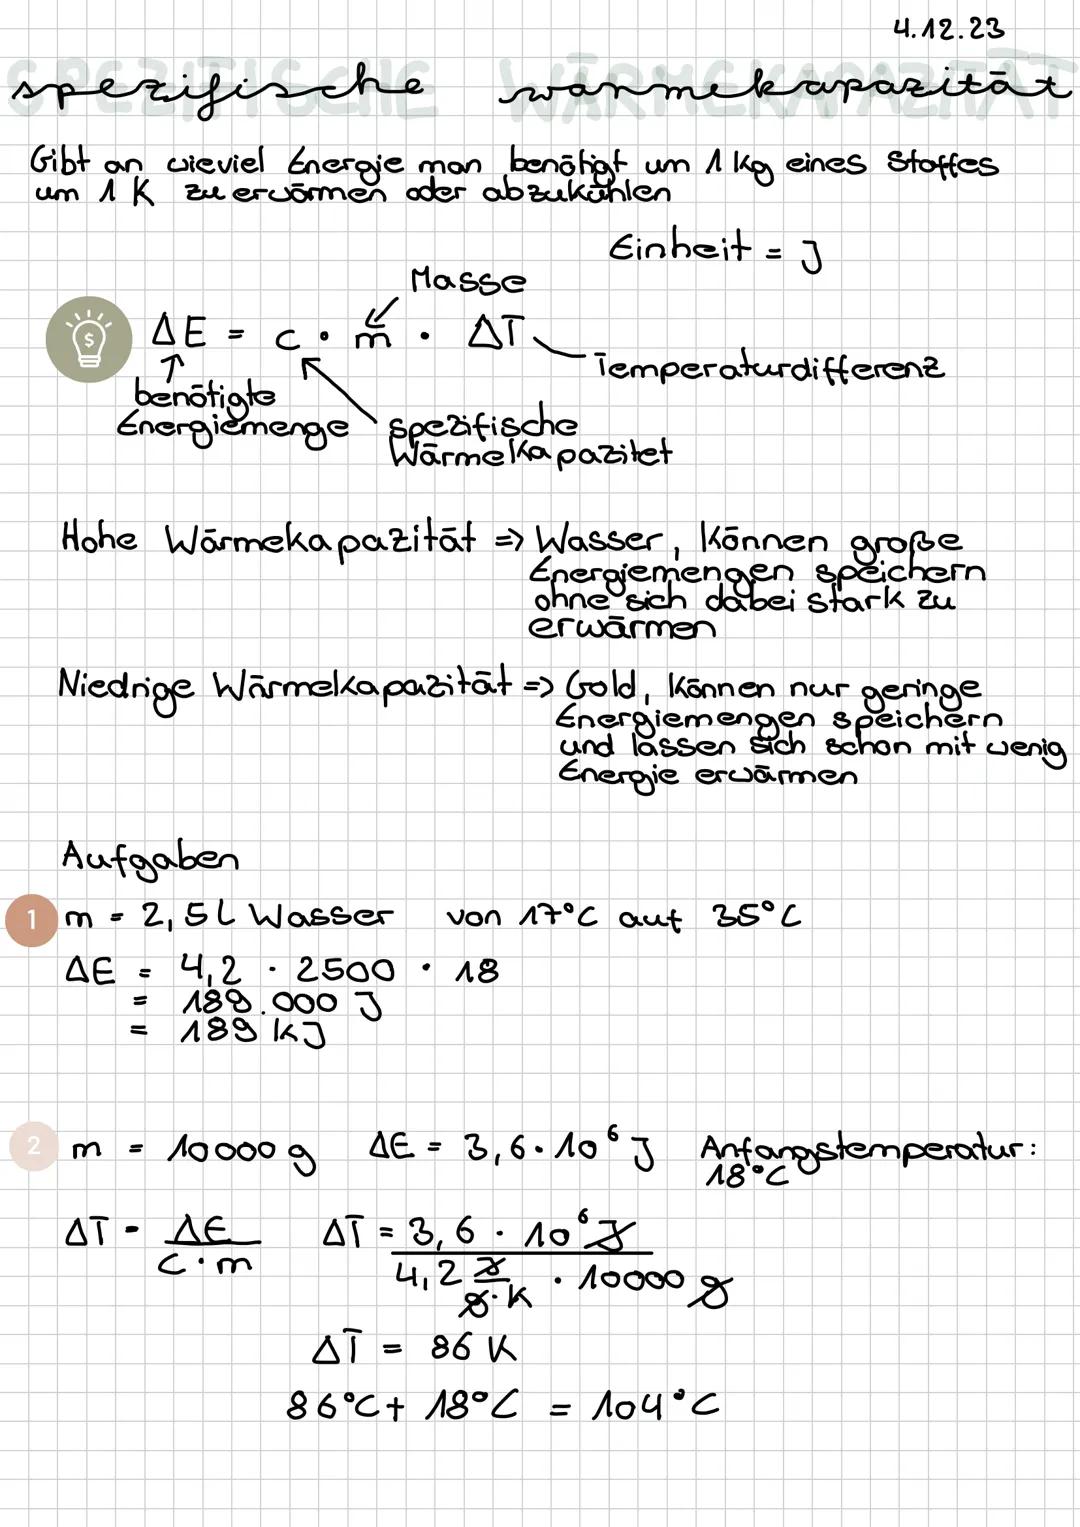 4.12.23
SPEZIFISCHE WÄRMEKAPAZITÄT
spezifische wärmekapazität
Gibt an wieviel Energie man benötigt um 1 kg eines Stoffes
um 1 K zu erwärmen oder abzukühlen
Einheit = J
Masse
$ ΔE = c · m · ΔT
Temperaturdifferenz
benötigte
Energiemenge
spezifische
Wärmekapazitet
Hohe Wärmekapazität => Wasser, können große
Energiemengen speichern
ohne sich dabei stark zu
erwärmen
Niedrige Wärmekapazität => Gold, können nur geringe
Energiemengen speichern
und lassen sich schon mit wenig
Energie erwärmen
Aufgaben
1 m = 2,5L Wasser von 17°C auf 35°C
ΔE = 4,2 · 2500 · 18
= 189.000 J
= 189 kJ
2 m = 10000 g ΔE = 3,6·10⁶ J Anfangstemperatur:
18°C
ΔT = ΔE ΔT = 3,6 · 10⁶ J
c·m 4,2 J · 10000 g
g·K
ΔT = 86 K
86°C + 18°C = 104°C